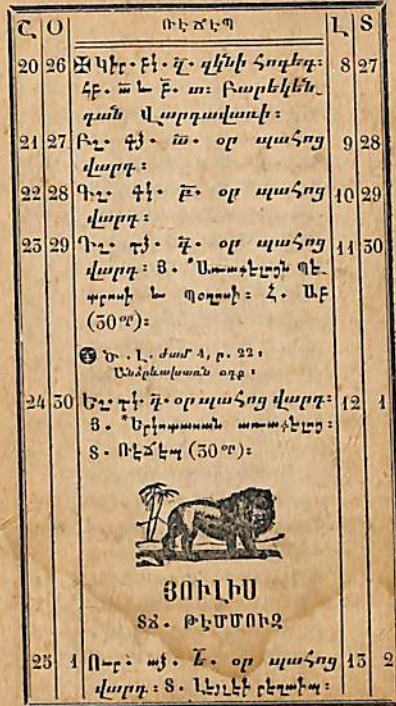 ՌԷՃԷՊ
Հ. Օ Լ Տ
20 26 ✠ Կիր. բկ. գ. զկնի Հոգեգ։ 8 27
Հբ. ա և բ. տ։ Բարեկեն֊
դան Վարդավառի։
21 27 Բշ. գձ. ա. օր պահոց 9 28
վարդ։
22 28 Գշ. գկ. բ. օր պահոց 10 29
վարդ։
23 29 Դշ. դձ. գ. օր պահոց 11 30
վարդ։ Յ. *Առաքելոցն Պե֊
տրոսի և Պօղոսի։ Հ. ԱԲ
(30 օր)։
Ծ. Լ. ժամ 4, ր. 22։
Անձրևախառն օդք։
24 30 Եշ. դկ. դ. օր պահոց վարդ։ 12 1
Յ. *Երկոտասան առաքելոց։
Տ. ՌԷՃԷՊ (30 օր)։
ՅՈՒԼԻՍ
ՏՃ. ԹԷՄՄՈՒԶ
25 1 Ուրբ. աձ. ե. օր պահոց 13 2
վարդ։ Տ. Լէյլէի րէղաիպ։